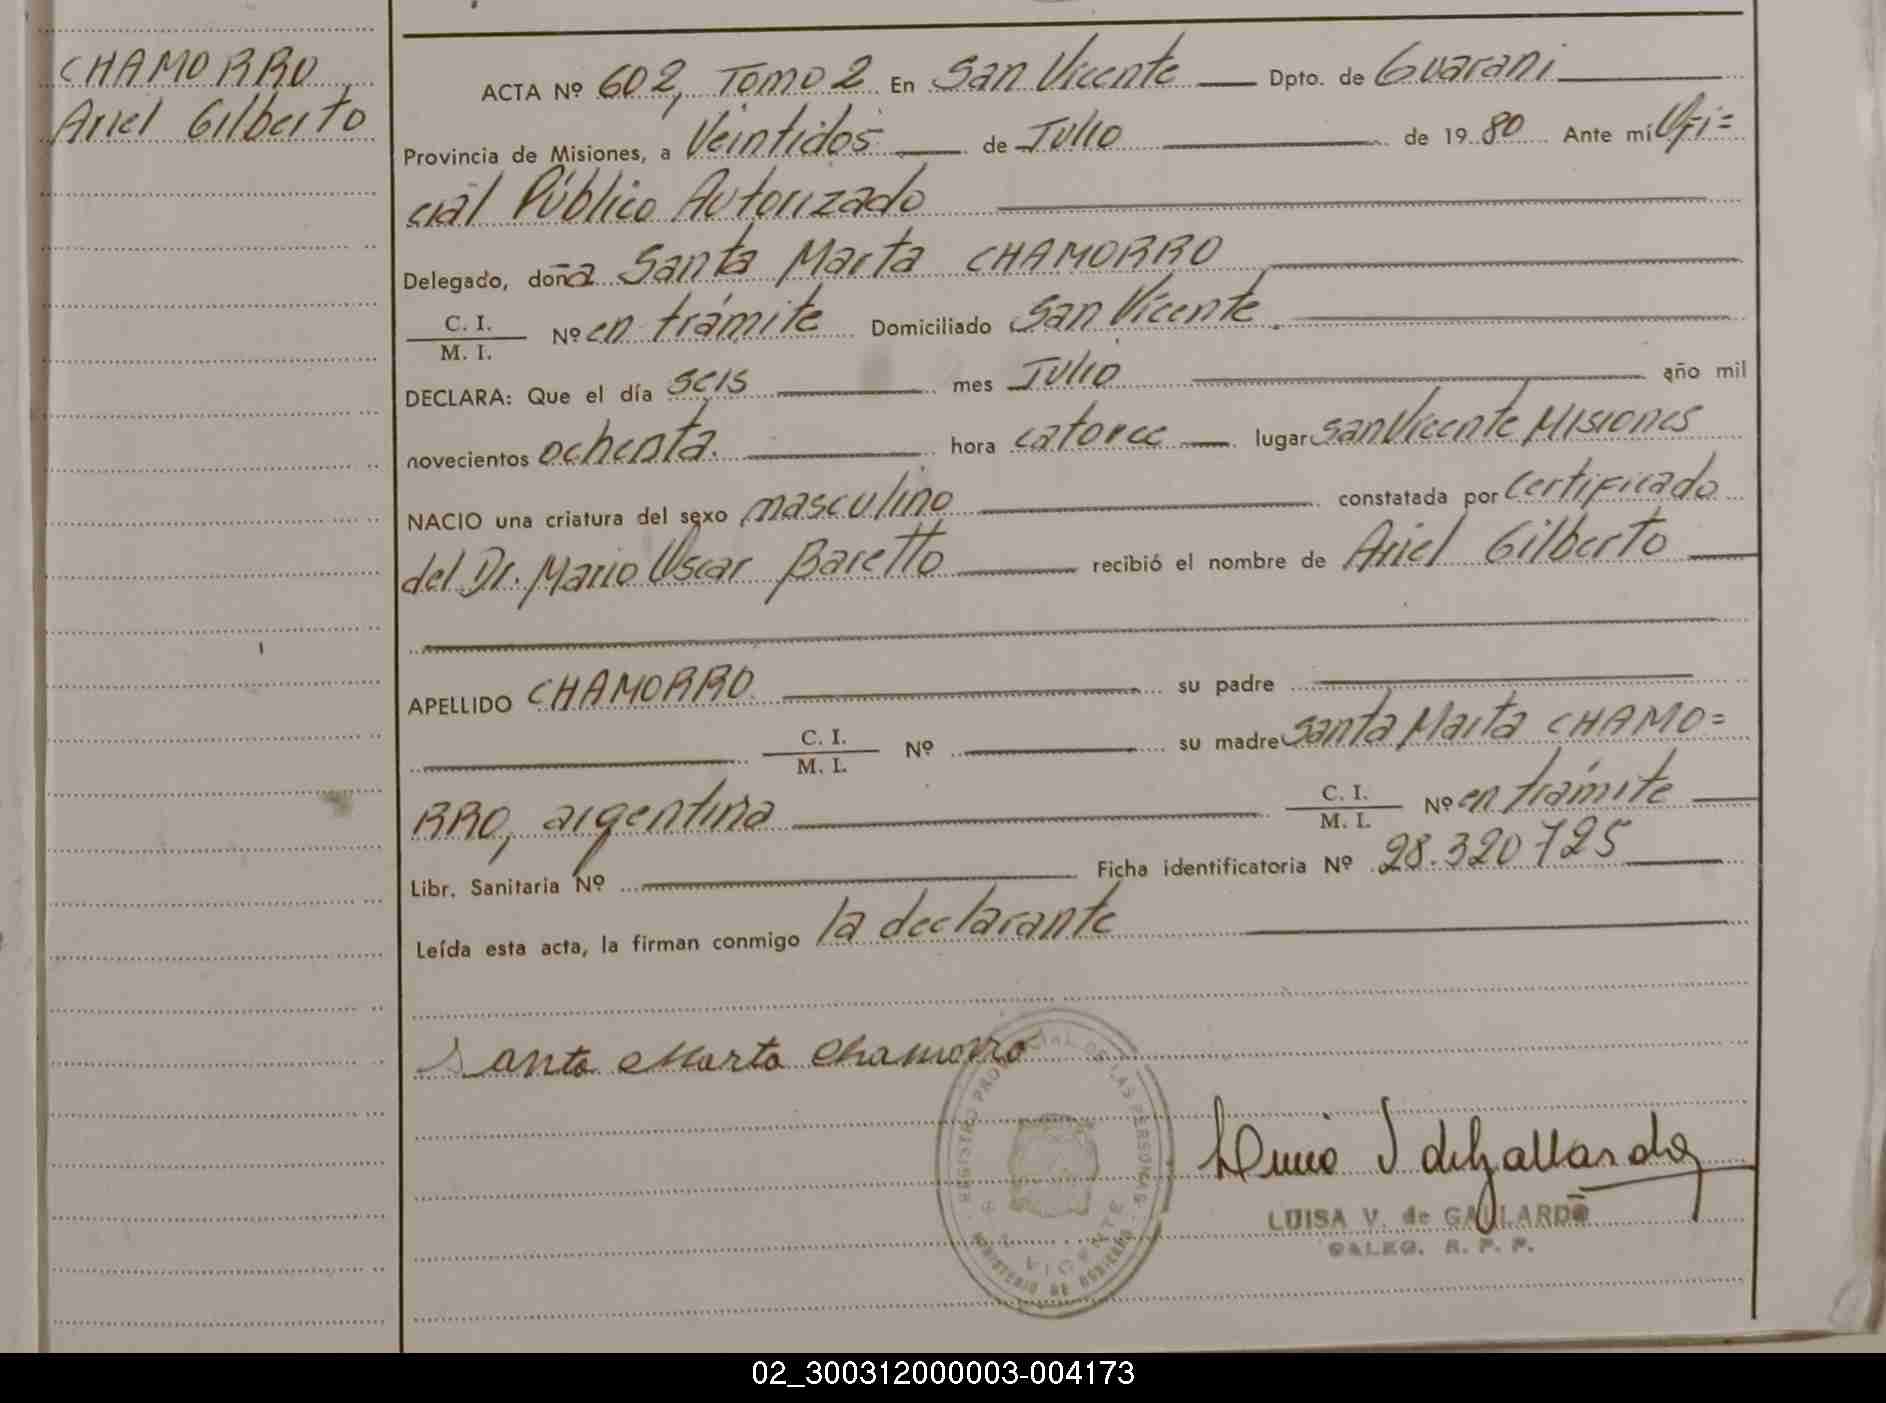 CHAMORRO
Ariel Gilberto
ACTA Nº 602, Tomo 2 En San Vicente Dpto. de Guarani
Provincia de Misiones, a Veintidos de Julio de 1980 Ante mí Ofi=
cial Público Autorizado
Delegado, doña Santa Marta CHAMORRO
C. I.
M. I. Nº en trámite Domiciliado San Vicente.
DECLARA: Que el día seis mes Julio año mil
novecientos ochenta. hora catorce lugar San Vicente Misiones
NACIO una criatura del sexo masculino constatada por certificado
del Dr. Mario Oscar Baretto recibió el nombre de Ariel Gilberto
APELLIDO CHAMORRO su padre
C. I.
M. I. Nº su madre Santa Marta CHAMO=
RRO, argentina C. I.
M. I. Nº en trámite
Libr. Sanitaria Nº Ficha identificatoria Nº 28.320725
Leída esta acta, la firman conmigo la declarante
Santa Marta Chamorro
REGISTRO PROVINCIAL DE LAS PERSONAS
S. VICENTE
MINISTERIO DE GOBIERNO
LUISA V. de GALLARDO
DALEG. R. P. P.
02_300312000003-004173